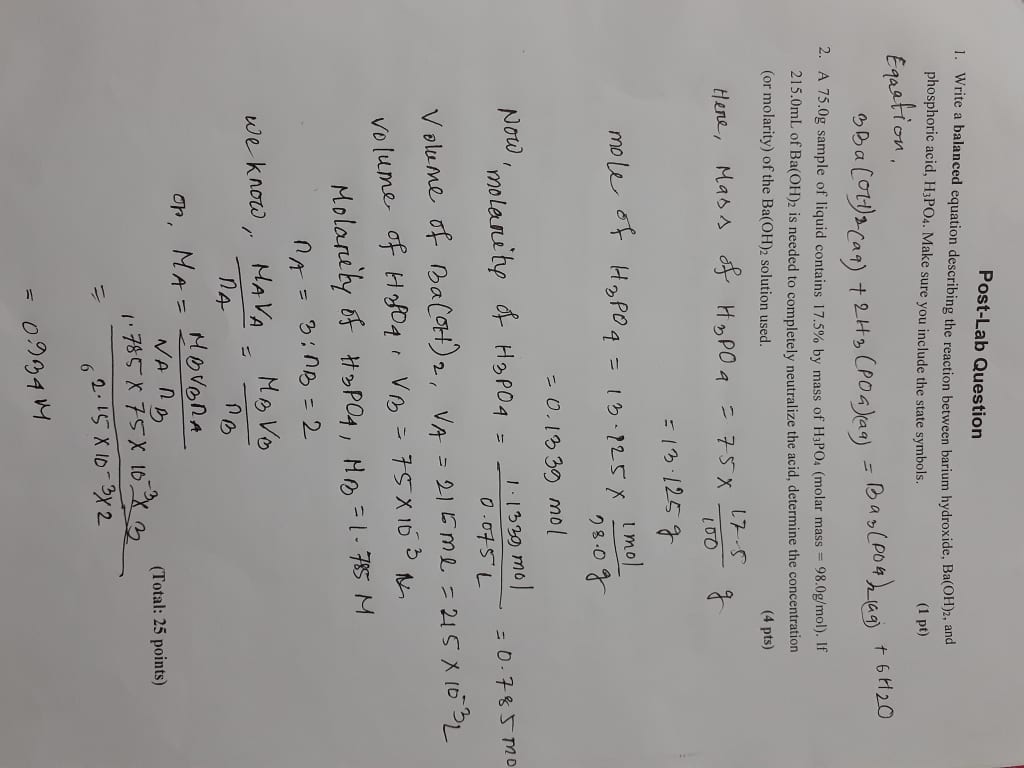 Post-Lab Question
1. Write a balanced equation describing the reaction between barium hydroxide, Ba(OH)2, and
phosphoric acid, H3PO4. Make sure you include the state symbols. (1 pt)
Eqaation,
3Ba(OH)2(aq) + 2H3(PO4)(aq) = Ba3(PO4)2(aq) + 6H2O
2. A 75.0g sample of liquid contains 17.5% by mass of H3PO4 (molar mass = 98.0g/mol). If
215.0mL of Ba(OH)2 is needed to completely neutralize the acid, determine the concentration
(or molarity) of the Ba(OH)2 solution used. (4 pts)
Here, Mass of H3PO4 = 75 x 17.5/100 g
= 13.125 g
mole of H3PO4 = 13.125 x 1 mol/98.0 g
= 0.1339 mol
Now, molarity of H3PO4 = 1.1339 mol/0.075 L = 0.785 mo
Volume of Ba(OH)2, VA = 215 ml = 215 x 10-3 L
volume of H3PO4, VB = 75 x 10-3
Molarity of H3PO4, MB = 1.785 M
nA = 3; nB = 2
we know, MAVA/nA = MBVB/nB
or, MA = MBVBnA/VA nB
(Total: 25 points)
= 1.785 x 75 x 10-3 x 3/2.15 x 10-3 x 2
6
= 0.934 M